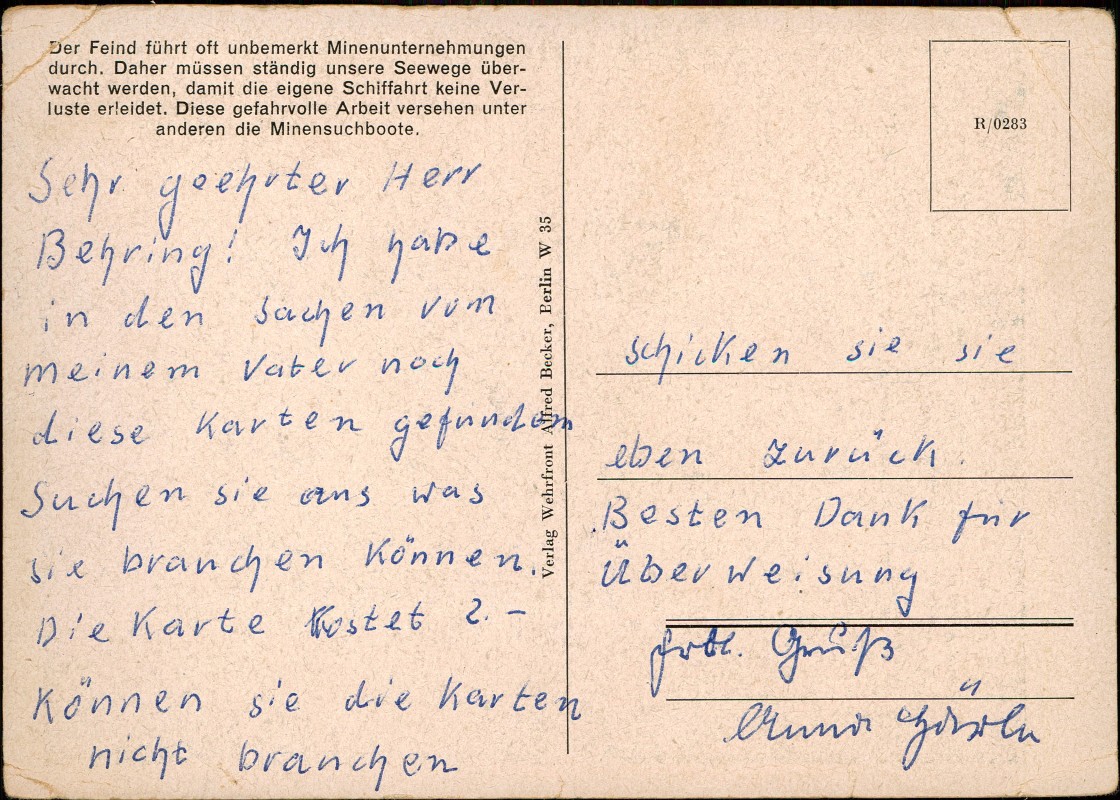 Der Feind führt oft unbemerkt Minenunternehmungen
durch. Daher müssen ständig unsere Seewege über-
wacht werden, damit die eigene Schiffahrt keine Ver-
luste erleidet. Diese gefahrvolle Arbeit versehen unter
anderen die Minensuchboote.
Sehr geehrter Herr
Behring! Ich habe
in den Sachen vom
meinem Vater noch
diese Karten gefunden
Suchen sie aus was
sie brauchen können.
Die Karte kostet 2.-
Können sie die Karten
nicht brauchen
Verlag Wehrfront Alfred Becker, Berlin W 35
R/0283
schicken sie sie
eben zurück.
Besten Dank für
Überweisung
frdl. Gruß
Anna